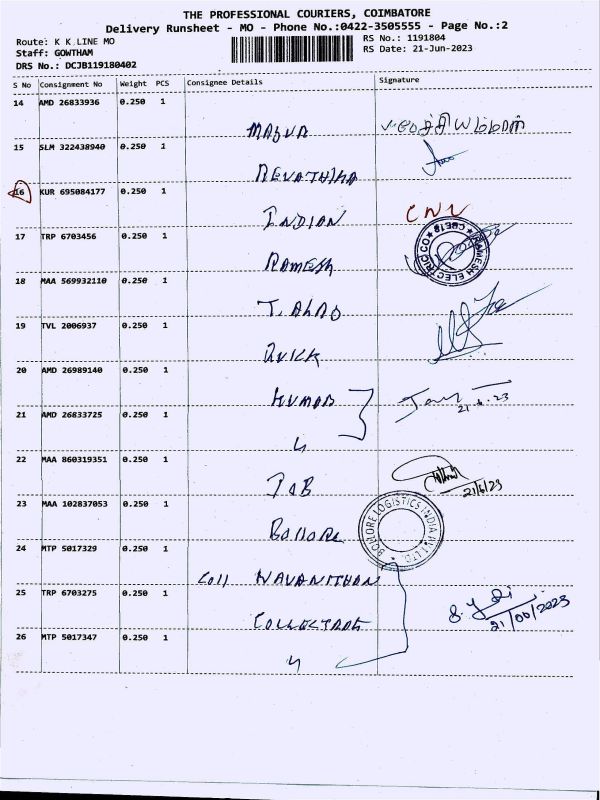 THE PROFESSIONAL COURIERS, COIMBATORE
Delivery Runsheet - MO - Phone No.:0422-3505555 - Page No.:2
Route: K K LINE MO
RS No.: 1191804
Staff: GOWTHAM
RS Date: 21-Jun-2023
DRS No.: DCJB119180402
S No Consignment No Weight PCS Consignee Details Signature
14 AMD 26833936 0.250 1
15 SLM 322438940 0.250 1
REVATHIKA
16 KUR 695084177 0.250 1
INDIAN CNN
17 TRP 6703456 0.250 1
RAMESH
RAMESH ELECTRIC CO
CBE18
18 MAA 569932110 0.250 1
19 TVL 2006937 0.250 1
QUICK
20 AMD 26989140 0.250 1
KUMAR
21.6.23
21 AMD 26833725 0.250 1
22 MAA 860319351 0.250 1
JOB
21/6/23
23 MAA 102837053 0.250 1
BOLLORE
BOLLORE LOGISTICS INDIA PVT. LTD.
24 MTP 5017329 0.250 1
Coll NAVANITHAN
25 TRP 6703275 0.250 1
COLLECTROE
21/06/2023
26 MTP 5017347 0.250 1